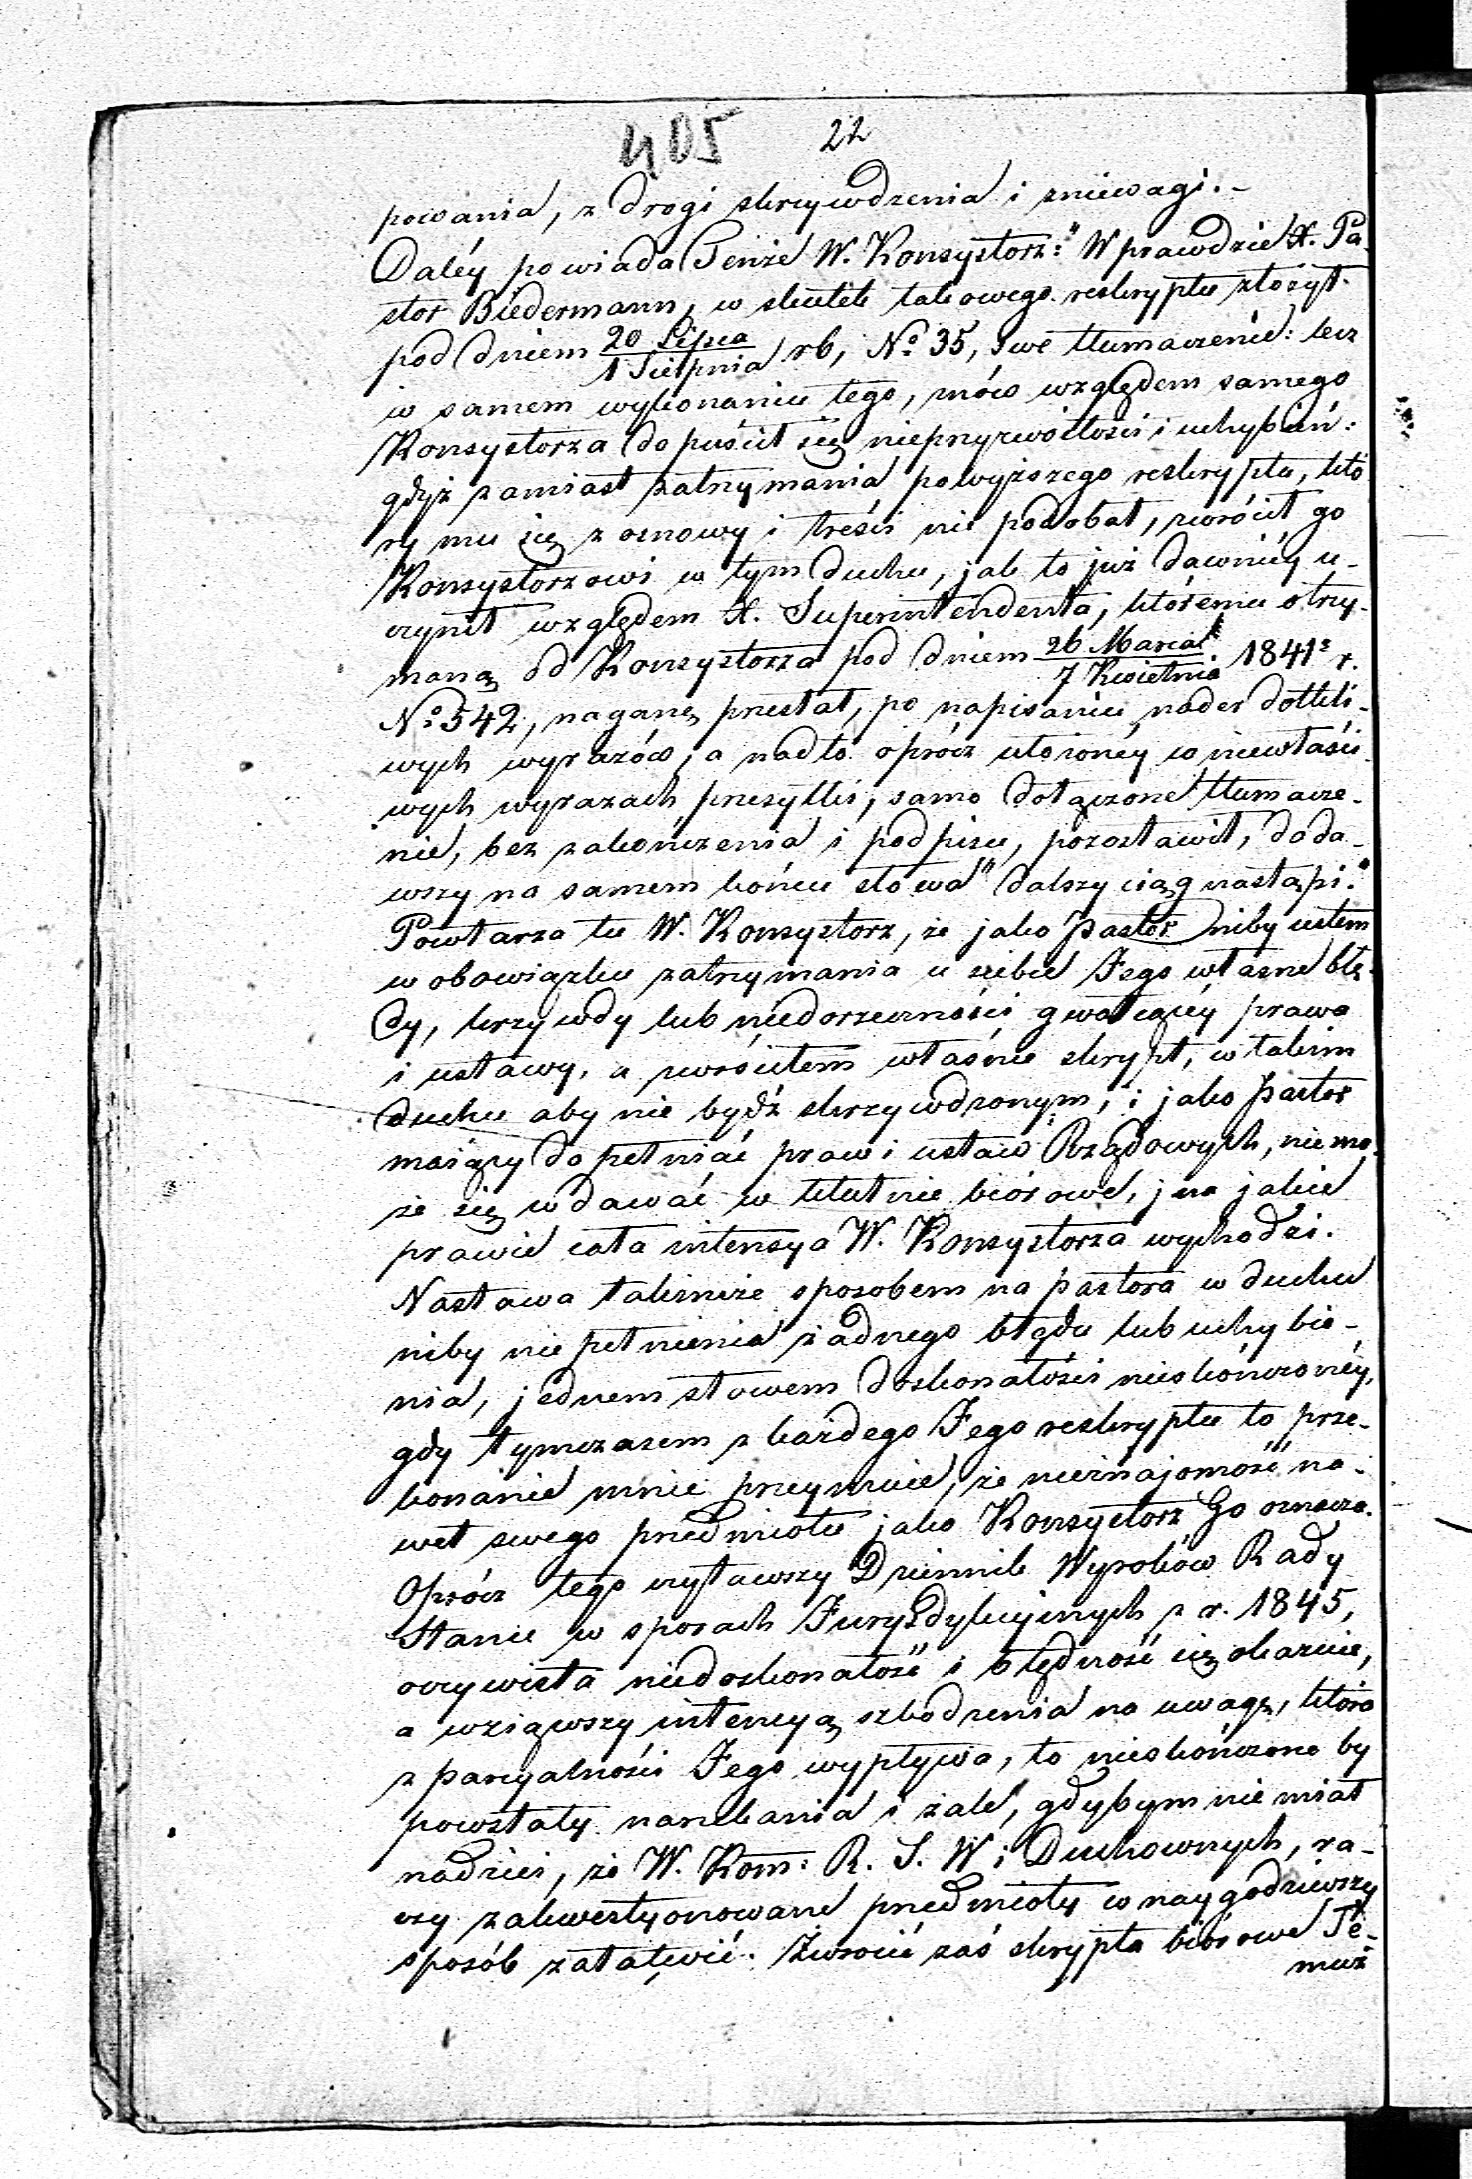 405 22
powania, z drogi skrzywdzenia i zniewagi.-
Daléy powiada Tenże W. Konsystorz: "Wprawdzie X. Pa-
stor Biedermann, w skutek takowego reskryptu złożył
pod dniem 20 Lipca / 1 Sierpnia rb, No. 35, swe tłumaczenie: lecz
w samem wykonaniu tego, mów względem samego
Konsystorza dopuścił się nieprzyzwoitości i uchybień:
gdyż zamiast zatrzymania powyższego reskryptu, któ
ry mu się z osnowy i treści nie podobał, zwrócił go
Konsystorzowi w tym duchu, jak to już dawniéy u-
czynił względem X. Superintendenta, któremu otrzy-
maną od Konsystorza pod dniem 26 Marca / 7 Kwietnia 1841 r.
No. 542, naganę przesłał, po napisaniu nader dotkli-
wych wyrazów; a nadto oprócz ułożonéy w niewłaści-
wych wyrazach przesyłki, samo dołączone tłumacze-
nie, bez zakończenia i podpisu, pozostawił, doda-
wszy na samem końcu słowa "dalszy ciąg nastąpi."
Powtarza tu W. Konsystorz, że jako pastor niby ustem
w obowiązku zatrzymania u siebie Jego własne błę-
dy, krzywdy lub niedorzeczności gwałcącéy prawa
i ustawy, a zwróciłem właśnie skrypt, w takim
duchu aby nie bydź skrzywdzonym; i jako pastor
maiący dopełniać praw i ustaw Rządowych, nie mo-
że się wdawać w kłutnie biórowe, jna jakie
prawie cała intensya W. Konsystorza wychodzi.
Nastawa takimże sposobem na pastora w duchu
niby nie pełnienia żadnego błędu lub uchybie-
nia, jednem słowem doskonałości nieskończonéy,
gdy tymczasem z każdego Jego reskryptu to prze-
konanie mnie przeymuie, że nieznajomość na-
wet swego przedmiotu jako Konsystorz Go oznacza.
Oprócz tego czytawszy Dziennik Wyroków Rady
Stanu w sporach Juryzdykcyinych z r. 1845,
oczywista niedoskonałość i błędność się okazuie,
a wziąwszy intencyą szkodzenia na uwagę, która
z parcyalności Jego wypływa, to nieskończone by
powstały narzekania i żale, gdybym nie miał
nadziei, że W. Kom: R. S. W i Duchownych, ra-
czy zakwestyonowane przedmioty w naygodziwszy
sposób załatwić. Zwrócić zaś skrypta biórowe Te-
muż